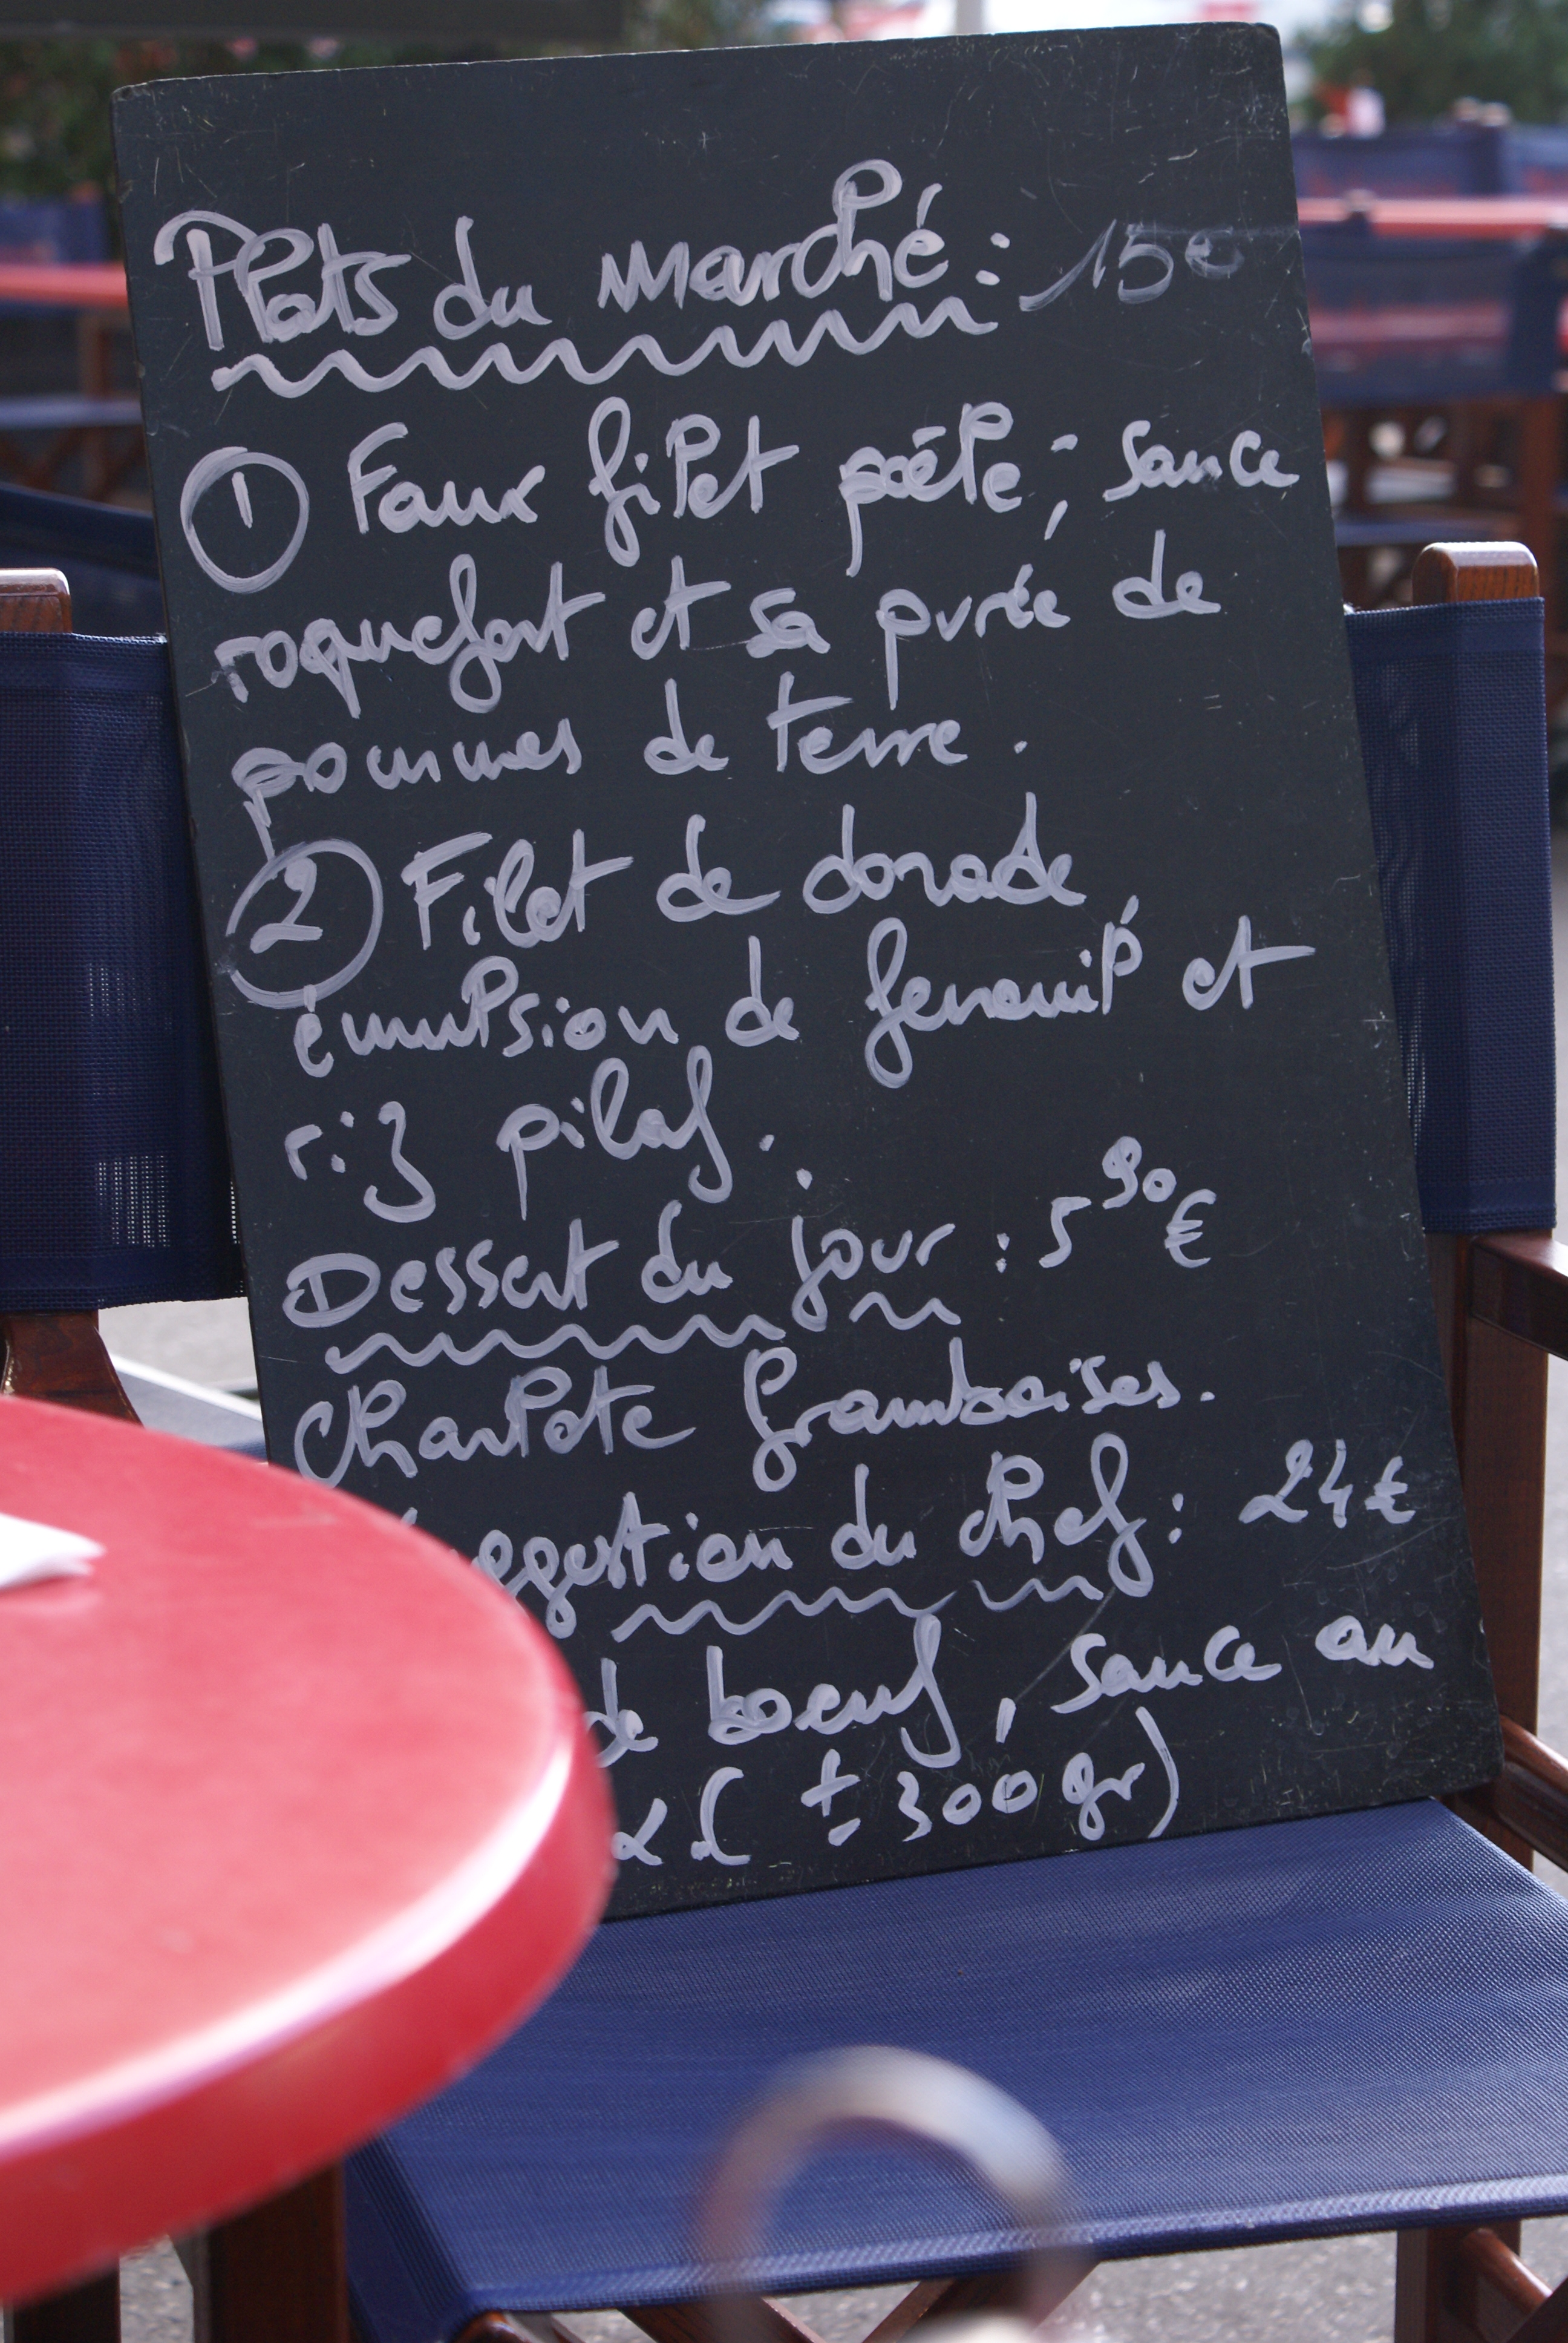 Plats du marché : 15€
① Faux filet poêlé ; sauce
roquefort et sa purée de
pommes de terre .
② Filet de dorade ,
émulsion de fenouil et
riz pilaf .
Dessert du jour : 5 90 €
Charlote framboises .
ggestion du chef : 24 €
de boeuf , sauce au
x ( ± 300 gr )